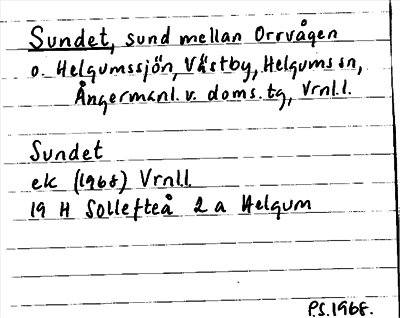 Sundet, sund mellan Orrvågen
o. Helgumssjön, Västby, Helgums sn,
Ångermanl. v. doms. tg, Vrnl.l.
Sundet
ek (1968) Vrnl.l.
19 H Sollefteå 2 a Helgum
P.S. 1968.